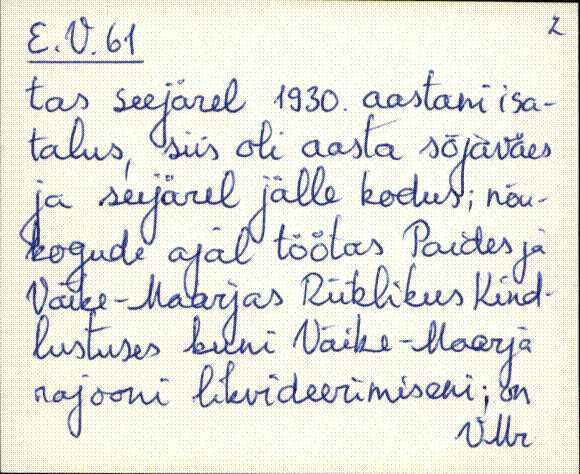 2
E.V.61
tas seejärel 1930. aastani isa-
talus, siis oli aasta sõjaväes
ja seejärel jälle kodus; nõu-
kogude ajal töötas Paides ja
Väike-Maarjas Riiklikus Kind-
lustuses kuni Väike-Maarja
rajooni likvideerimiseni; on
VMr